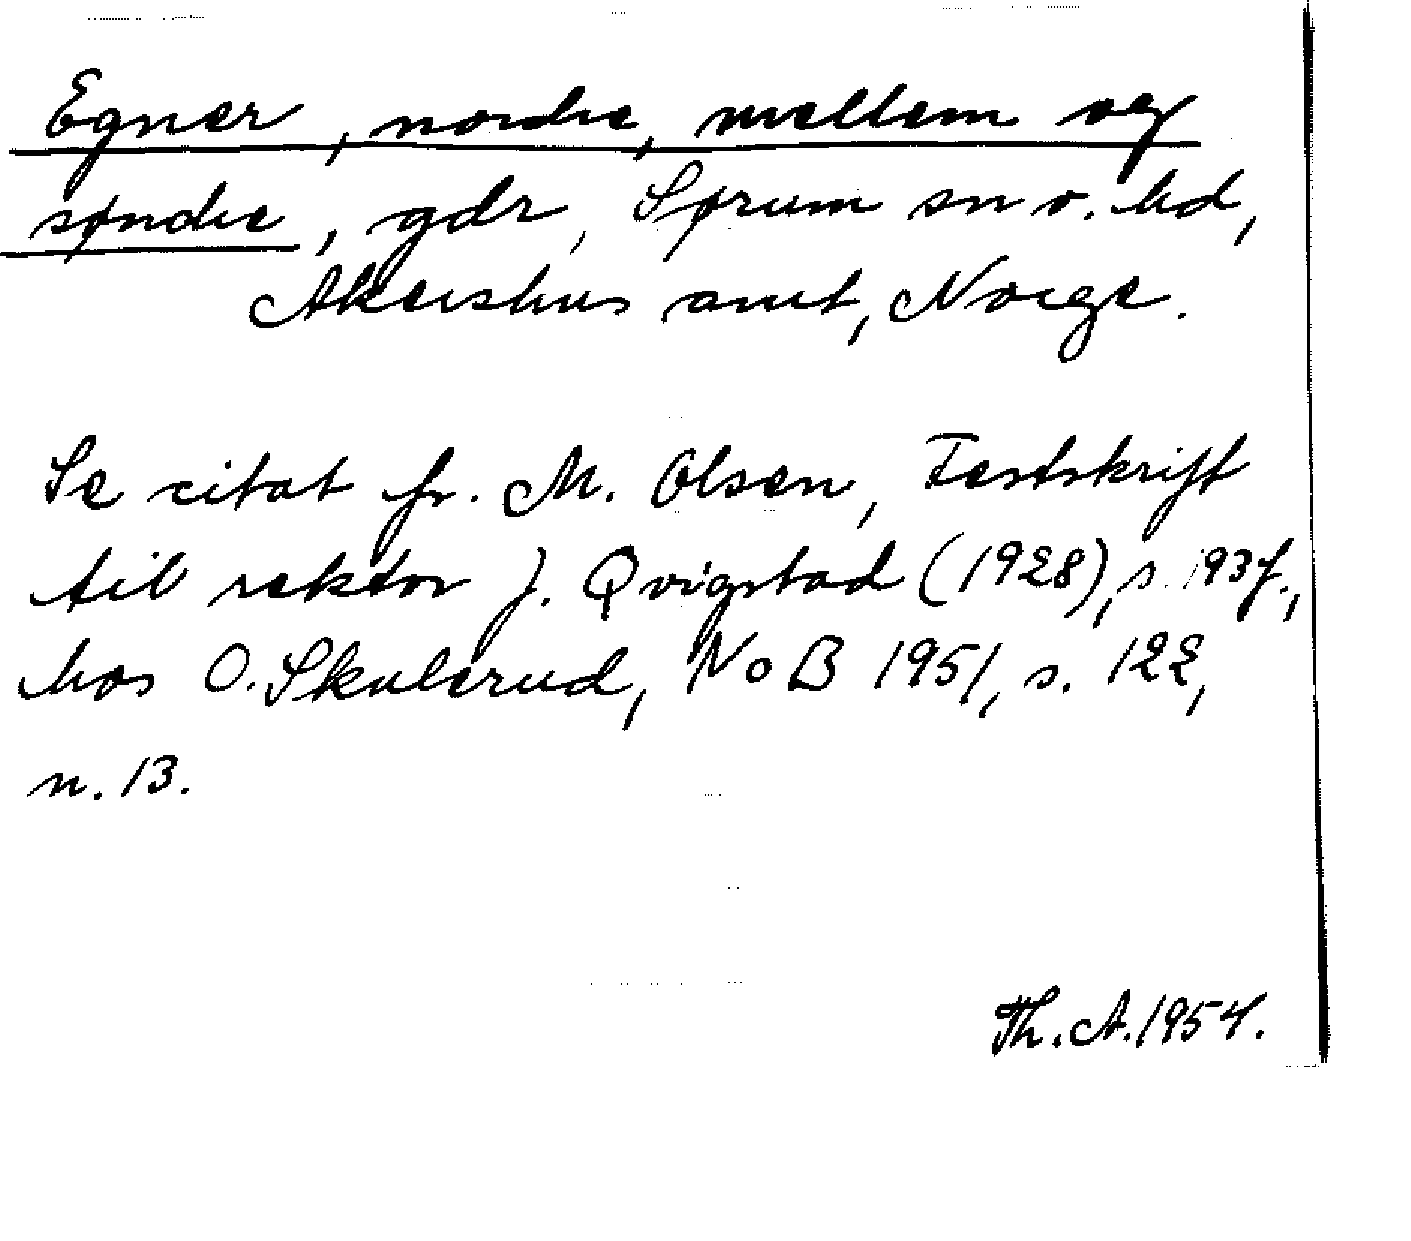 Egner, nordre, mellem og
søndre, gdr, Sørum sn o. hd,
Akershus amt, Norge.
Se citat fr. M. Olsen, Festskrift
til rektor J. Qvigstad (1928), s. 193f.,
hos O. Skulerud, NoB 1951, s. 122,
n. 13.
Th. A. 1954.